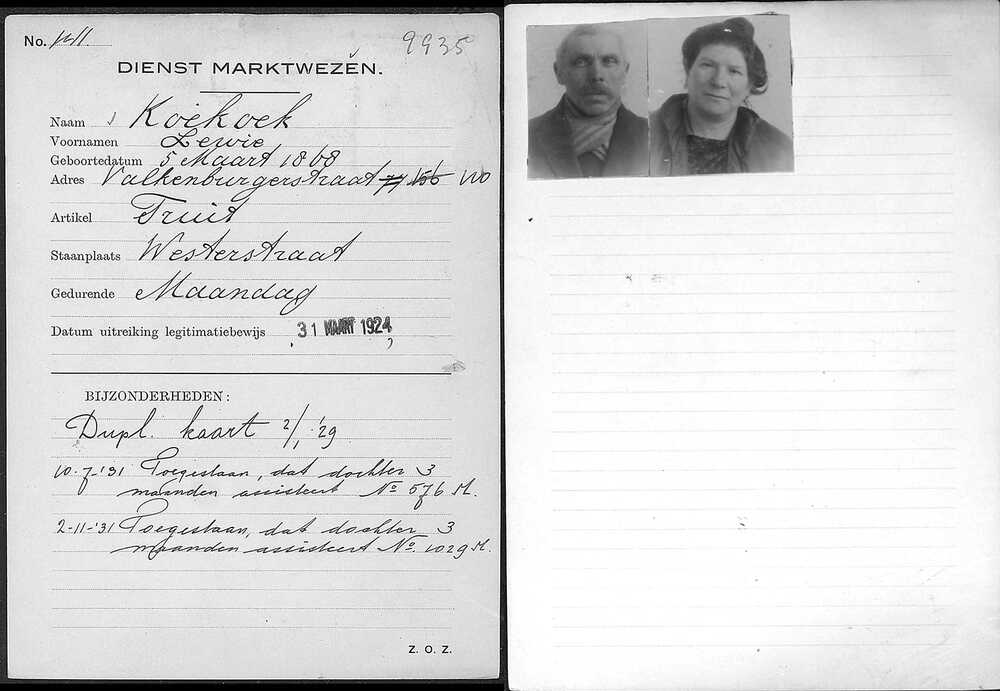 No. 1211.
9935
DIENST MARKTWEZEN.
Naam Koekoek
Voornamen Lewie
Geboortedatum 5 Maart 1868
Adres Valkenburgerstraat 77 156 110
Artikel Fruit
Staanplaats Westerstraat
Gedurende Maandag
Datum uitreiking legitimatiebewijs 31 MAART 1924
BIJZONDERHEDEN:
Dupl. kaart 2/1 '29
10-7-'31 Toegestaan, dat dochter 3
maanden assisteert No 576 M.
2-11-'31 Toegestaan, dat dochter 3
maanden assisteert No. 1029 M.
Z. O. Z.